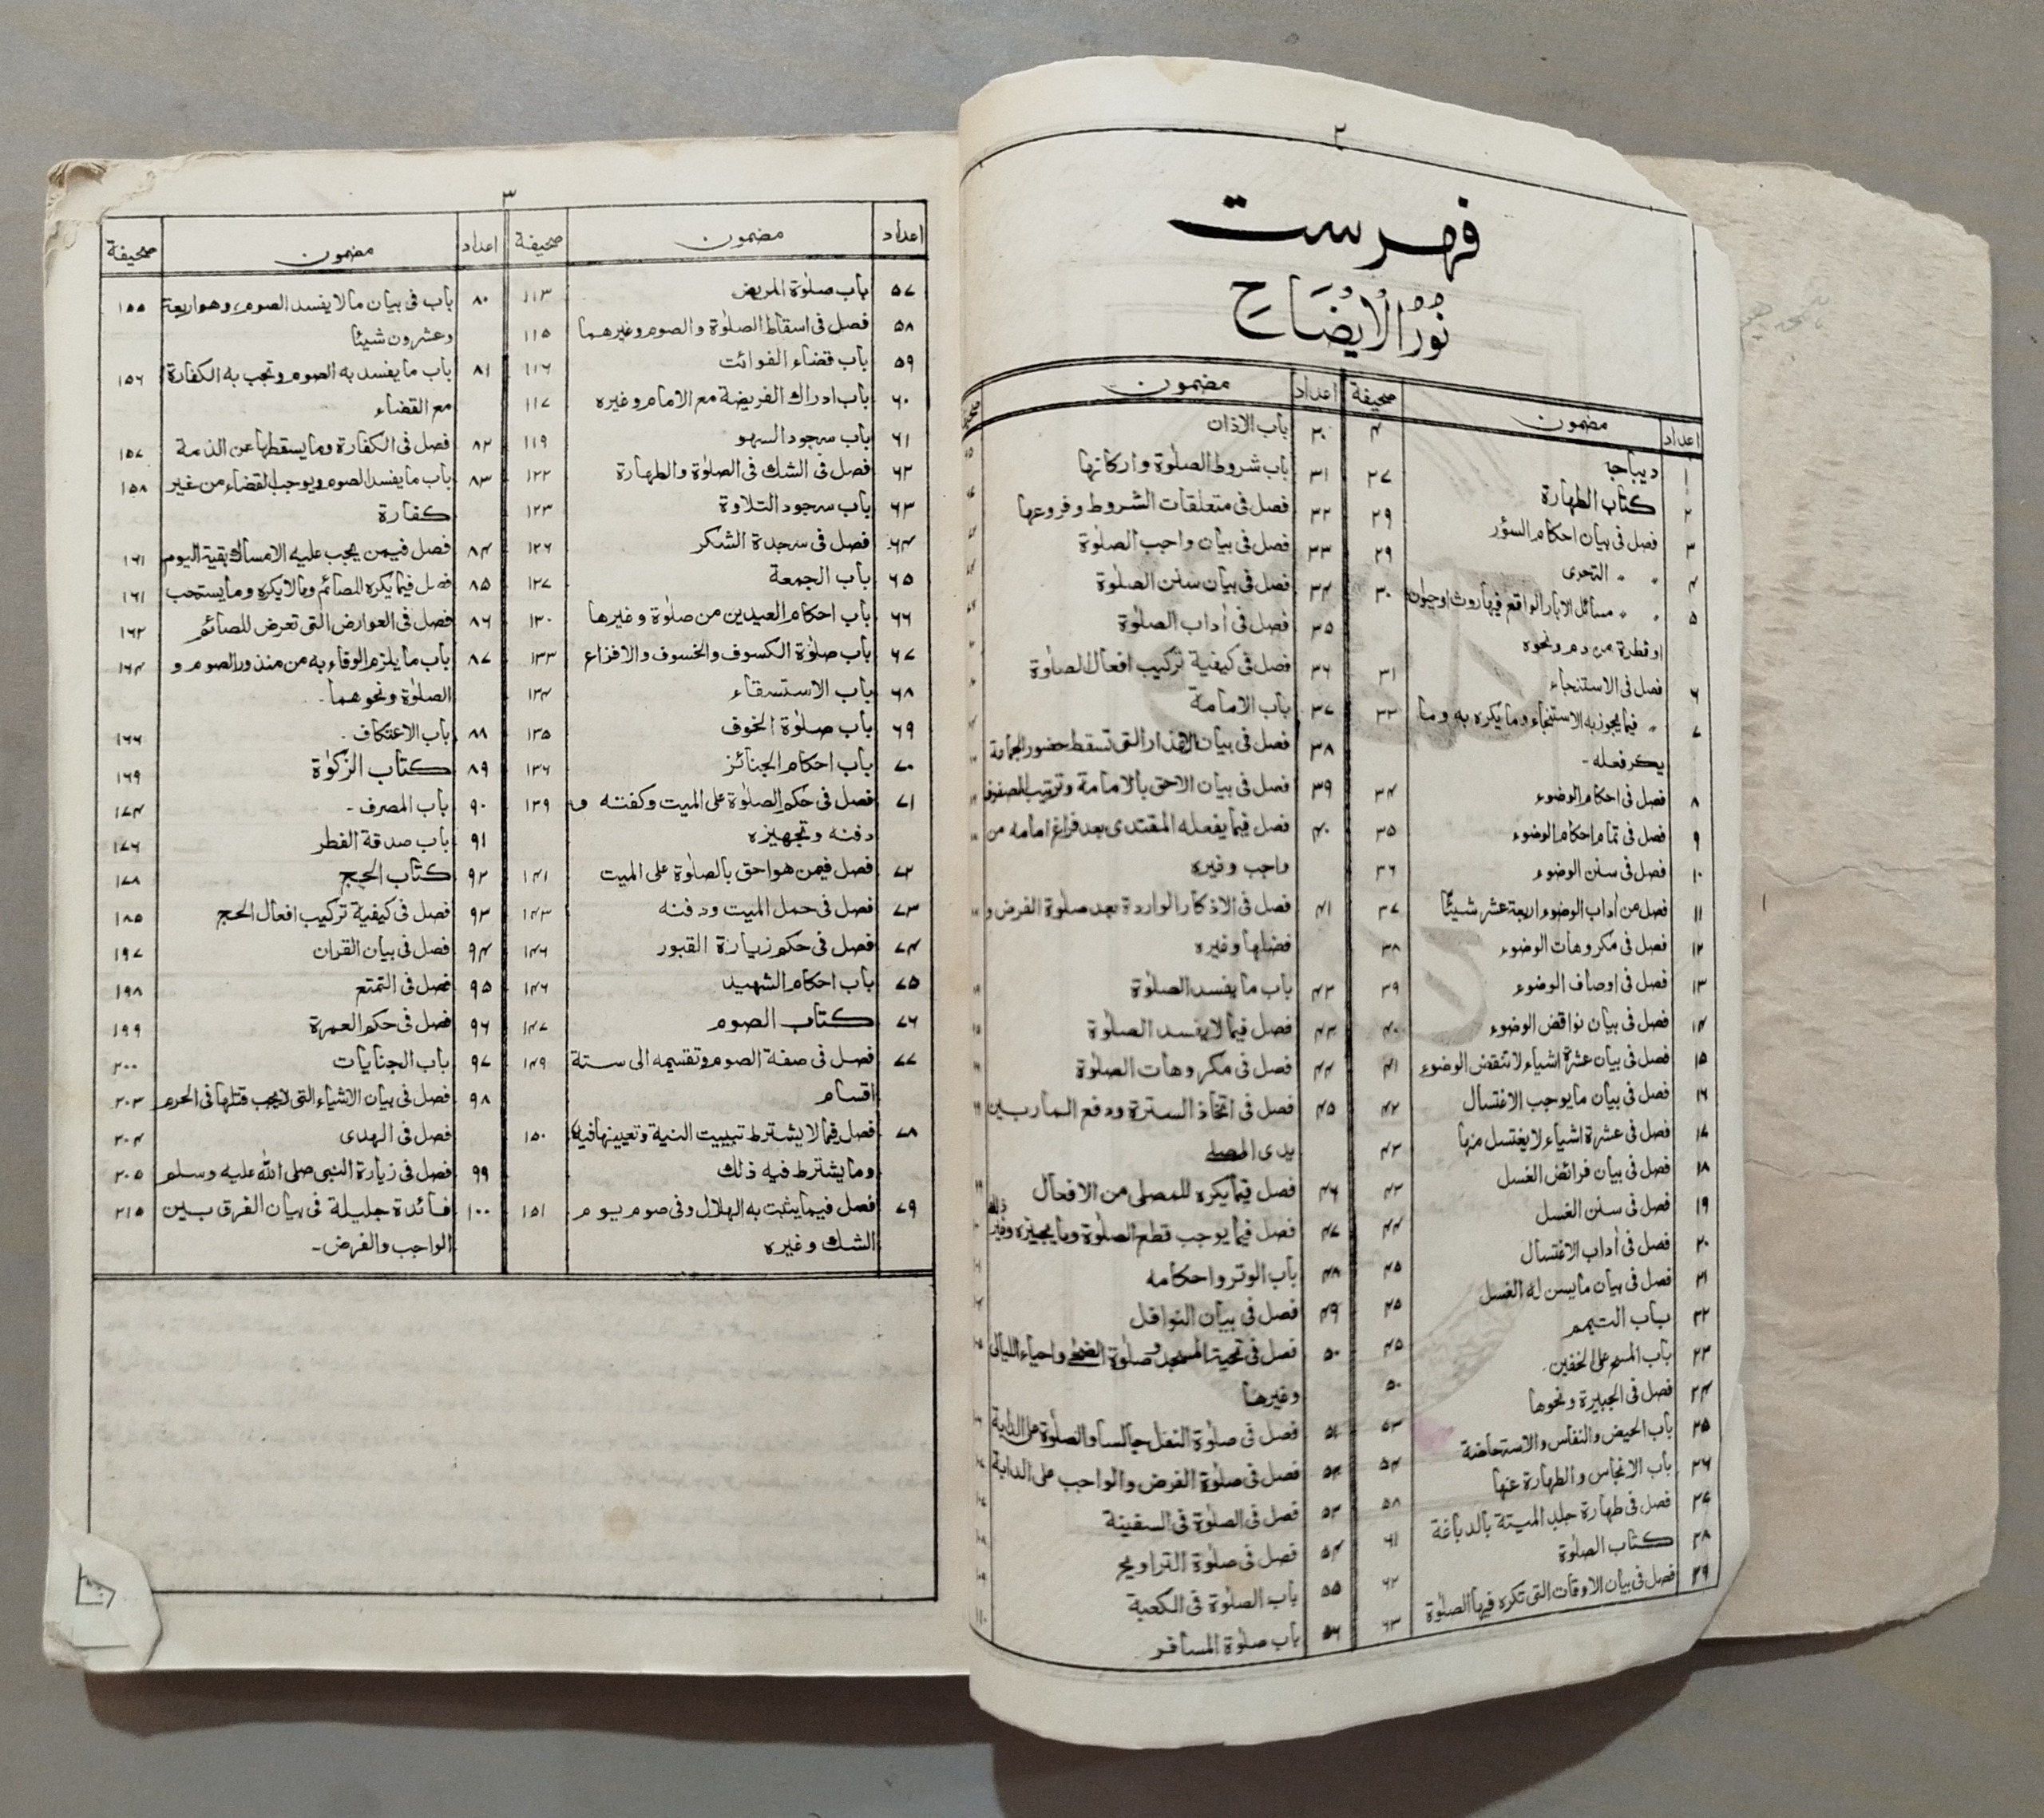 ٢
فهرست
نُوْرُالْاِيْضَاحِ
اعداد مضمون صحيفة اعداد مضمون
١ ديباجا ٤
٢ كتاب الطهارة ٢٧
٣ فصل فى بيان احكام السؤر ٢٩
٤ " " التحرى ٢٩
٥ " " مسائل الابار الواقع فيها روث اوحيوان ٣٠
اوقطرة من دم ونحوه
٦ فصل فى الاستنجاء ٣١
٧ " فيما يجوز به الاستنجاء وما يكره به وما ٣٢
يكرفعله -
٨ فصل فى احكام الوضوء ٣٤
٩ فصل فى تمام احكام الوضوء ٣٥
١٠ فصل فى سنن الوضوء ٣٦
١١ فصل من أداب الوضوء اربعة عشر شيئًا ٣٧
١٢ فصل فى مكروهات الوضوء ٣٨
١٣ فصل فى اوصاف الوضوء ٣٩
١٤ فصل فى بيان نواقض الوضوء ٤٠
١٥ فصل فى بيان عشرة اشياء لا تنقض الوضوء ٤١
١٦ فصل فى بيان ما يوجب الاغتسال ٤٢
١٧ فصل فى عشرة اشياء لا يغتسل منها ٤٣
١٨ فصل فى بيان فرائض الغسل ٤٣
١٩ فصل فى سنن الغسل ٤٤
٢٠ فصل فى أداب الاغتسال ٤٥
٢١ فصل فى بيان ما يسن له الغسل ٤٥
٢٢ باب التيمم ٤٥
٢٣ باب المسح على الخفين . ٥٠
٢٤ فصل فى الجبيرة ونحوها ٥٣
٢٥ باب الحيض والنفاس والاستحاضة ٥٤
٢٦ باب الانجاس والطهارة عنها ٥٨
٢٧ فصل فى طهارة جلد الميتة بالدباغة ٦١
٢٨ كتاب الصلوٰة ٦٢
٢٩ فصل فى بيان الاوقات التى تكره فيها الصلوٰة ٦٣
٣٠ باب الاذان
٣١ باب شروط الصلوٰة واركانها
٣٢ فصل فى متعلقات الشروط وفروعها
٣٣ فصل فى بيان واجب الصلوٰة
٣٤ فصل فى بيان سنن الصلوٰة
٣٥ فصل فى أداب الصلوٰة
٣٦ فصل فى كيفية تركيب افعال الصلوٰة
٣٧ باب الامامة
٣٨ فصل فى بيان الاعذار التى تسقط حضور الجماعة
٣٩ فصل فى بيان الاحق بالامامة وترتيب الصفوف
٤٠ فصل فيما يفعله المقتدى بعد فراغ امامه من
واجب وغيره
٤١ فصل فى الاذكار الواردة بعد صلوٰة الفرض و
فضلها وغيره
٤٢ باب ما يفسد الصلوٰة
٤٣ فصل فيما لا يفسد الصلوٰة
٤٤ فصل فى مكروهات الصلوٰة
٤٥ فصل فى اتخاذ السترة ودفع المار بين
يدى المصلے
٤٦ فصل فيما يكره للمصلى من الافعال
٤٧ فصل فيما يوجب قطع الصلوٰة وما يجيزه وغير ذلك
٤٨ باب الوتر واحكامه
٤٩ فصل فى بيان النوافل
٥٠ فصل فى تحية المسجد وصلوٰة الضحے واحياء الليالى
وغيرها
٥١ فصل فى صلوٰة النفل جالسا والصلوٰة على الدابة
٥٢ فصل فى صلوٰة الفرض والواجب على الدابة
٥٣ فصل فى الصلوٰة فى السفينة
٥٤ فصل فى صلوٰة التراويح
٥٥ باب الصلوٰة فى الكعبة
٥٦ باب صلوٰة المسافر
٣
اعداد مضمون صحيفة اعداد مضمون صحيفة
٥٧ باب صلوٰة المريض ١١٣
٥٨ فصل فى اسقاط الصلوٰة والصوم وغيرهما ١١٥
٥٩ باب قضاء الفوائت ١١٦
٦٠ باب ادراك الفريضة مع الامام وغيره ١١٧
٦١ باب سجود السهو ١١٩
٦٢ فصل فى الشك فى الصلوٰة والطهارة ١٢٢
٦٣ باب سجود التلاوة ١٢٣
٦٤ فصل فى سجدة الشكر ١٢٦
٦٥ باب الجمعة ١٢٧
٦٦ باب احكام العيدين من صلوٰة وغيرها ١٣٠
٦٧ باب صلوٰة الكسوف والخسوف والافزاع ١٣٣
٦٨ باب الاستسقاء ١٣٤
٦٩ باب صلوٰة الخوف ١٣٥
٧٠ باب احكام الجنائز ١٣٦
٧١ فصل فى حكم الصلوٰة على الميت وكفنه و ١٣٩
دفنه وتجهيزه
٧٢ فصل فيمن هو احق بالصلوٰة على الميت ١٤١
٧٣ فصل فى حمل الميت ودفنه ١٤٣
٧٤ فصل فى حكم زيارة القبور ١٤٦
٧٥ باب احكام الشهيد ١٤٦
٧٦ كتاب الصوم ١٤٧
٧٧ فصل فى صفة الصوم وتقسيمه الى ستة ١٤٩
اقسام
٧٨ فصل فيما لا يشترط تبييت النية وتعيينها فيه ١٥٠
وما يشترط فيه ذلك
٧٩ فصل فيما يثبت به الهلال وفى صوم يوم ١٥١
الشك وغيره
٨٠ باب فى بيان ما لا يفسد الصوم وهو اربعة ١٥٥
وعشرون شيئا
٨١ باب ما يفسد به الصوم وتجب به الكفارة ١٥٦
مع القضاء
٨٢ فصل فى الكفارة وما يسقطها عن الذمة ١٥٧
٨٣ باب ما يفسد الصوم ويوجب القضاء من غير ١٥٨
كفارة
٨٤ فصل فيمن يجب عليه الامساك بقية اليوم ١٦١
٨٥ فصل فيما يكره للصائم وما لا يكره وما يستحب ١٦١
٨٦ فصل فى العوارض التى تعرض للصائم ١٦٢
٨٧ باب ما يلزم الوفاء به من منذور الصوم و ١٦٤
الصلوٰة ونحوهما .
٨٨ باب الاعتكاف . ١٦٦
٨٩ كتاب الزكوٰة ١٦٩
٩٠ باب المصرف - ١٧٤
٩١ باب صدقة الفطر ١٧٦
٩٢ كتاب الحج ١٧٨
٩٣ فصل فى كيفية تركيب افعال الحج ١٨٥
٩٤ فصل فى بيان القران ١٩٧
٩٥ فصل فى التمتع ١٩٨
٩٦ فصل فى حكم العمرة ١٩٩
٩٧ باب الجنايات ٢٠٠
٩٨ فصل فى بيان الاشياء التى لا يجب قتلها فى الحرم ٢٠٣
فصل فى الهدى ٢٠٤
٩٩ فصل فى زيارة النبى صلى الله عليه وسلم ٢٠٥
١٠٠ فائدة جليلة فى بيان الفرق بين ٢١٥
الواجب والفرض -